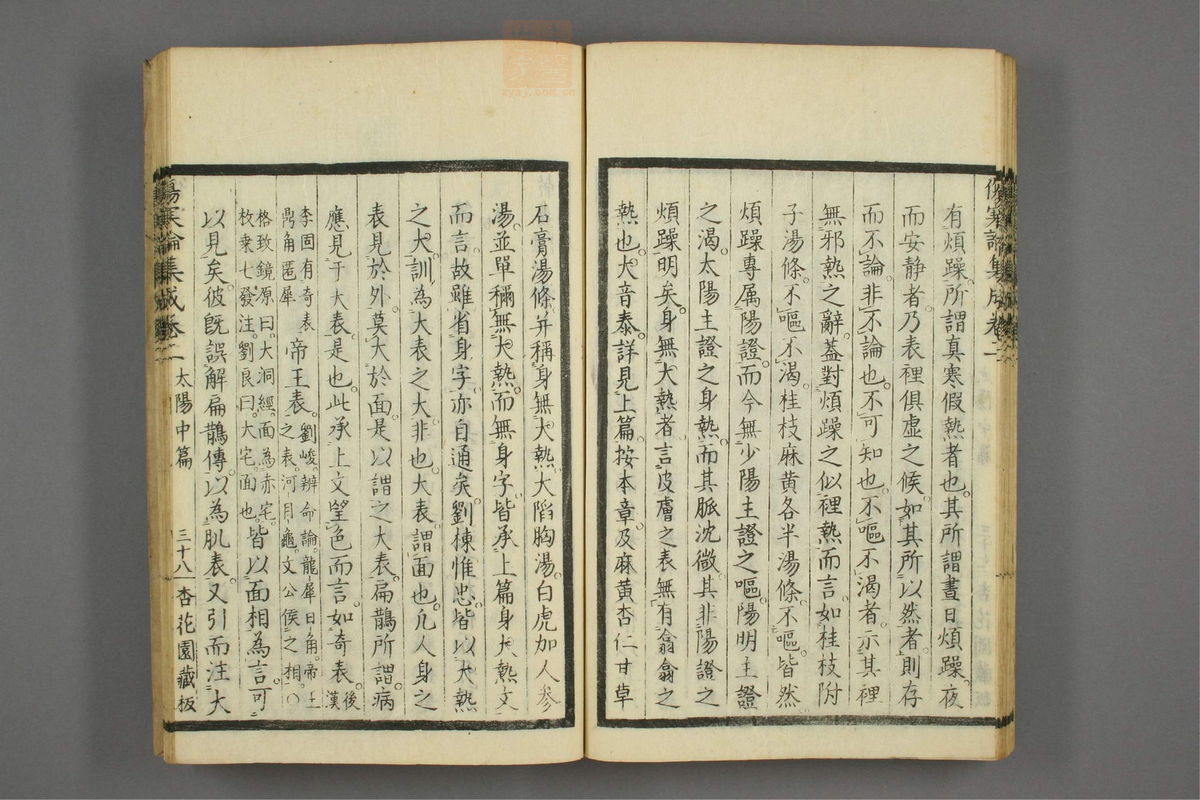 有煩躁所謂真寒假熱者也其所謂晝日煩躁夜
而安静者乃表裡俱虛之候如其所以然者則存
而不論非不論也不可知也不嘔不渴者示其裡
無邪熱之辭葢對煩躁之似裡熱而言如桂枝附
子湯條不嘔不渴桂枝麻黄各半湯條不嘔皆然
煩躁專属陽證而今無少陽主證之嘔陽明主證
之渴太陽主證之身熱而其脈沈微其非陽證之
煩躁明矣身無大熱者言皮膚之表無有翕翕之
熱也大音泰詳見上篇按本章及麻黄杏仁甘草
石膏湯條并稱身無大熱大陷胸湯白虎加人參
湯並單稱無大熱而無身字皆承上篇身大熱文
而言故雖省身字亦自通矣劉棟惟忠皆以大熱
之大訓為大表之大非也大表謂面也凡人身之
表見於外莫大於面是以謂之大表扁鵲所謂病
應見于大表是也此承上文望色而言如奇表後漢
李固有奇表鼎角匿犀帝王表劉峻辨命論龍犀日角帝王之表河目龜文公侯之相○
格致鏡原曰大洞經面為赤宅枚乗七發注劉良曰大宅面也皆以面相為言可
以見矣彼既誤解扁鵲傳以為肌表又引而注大
傷寒論集成卷二 太陽中篇 三十八 杏花園藏板